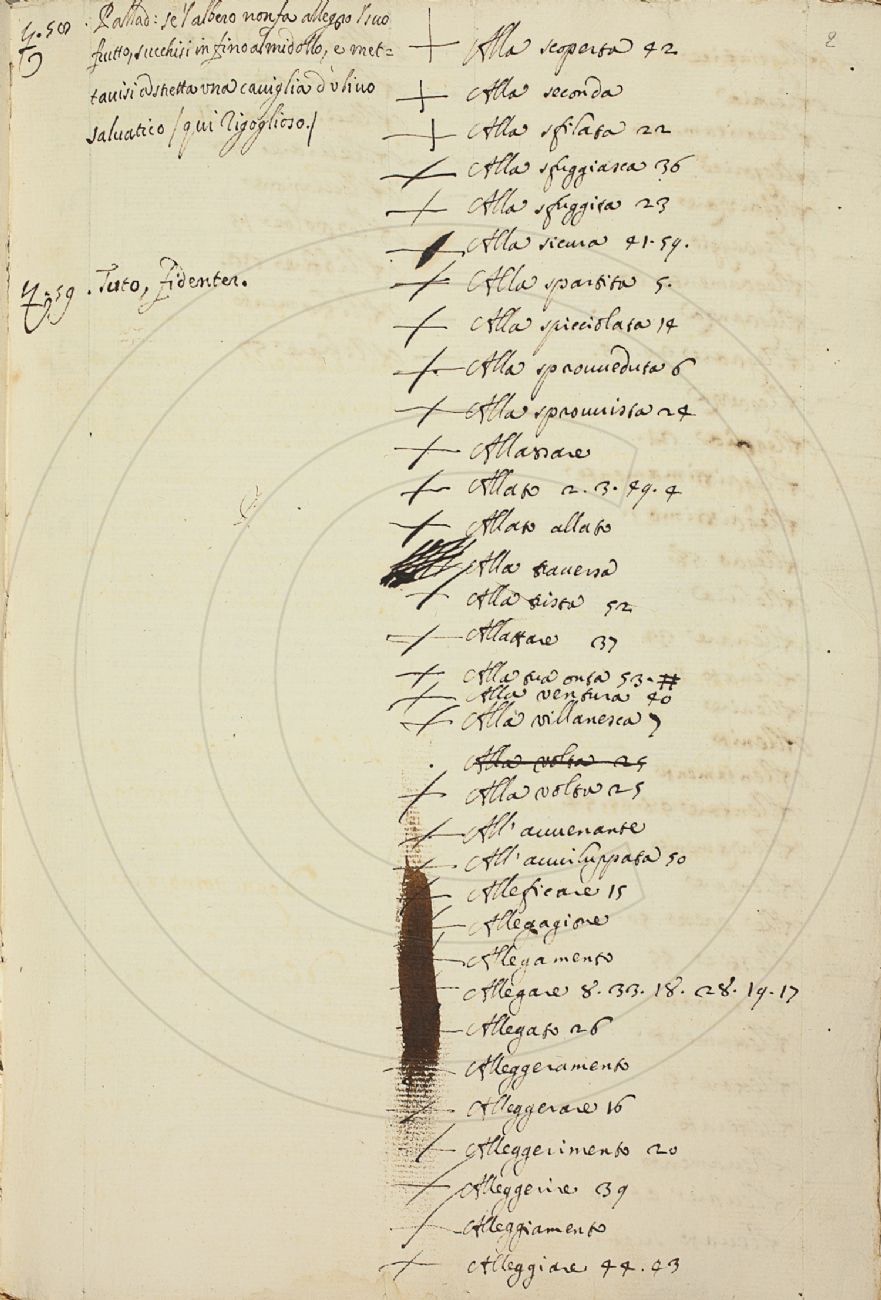 4.58. Pallad: se l'albero non fa alleggo l'suo
frutto, succhisi in fino al midollo, e met=
tauisi astretta vna cauiglia d'vliuo
saluatico / qui rigoglioso. /
4.59. Tuto, fidenter.
2
Alla scoperta 42
Alla seconda
Alla sfilata 22
Alla sfuggiasca 36
Alla sfuggita 23
Alla sicura 41.59.
Alla spartita 5.
Alla spicciolata 14
Alla sprouueduta 6
Alla sprouuista 24
Allassare
Allato 2.3.49.4
Allato allato
Alla trauersa
Alla trista 52
Allattare 37
Alla tua onta 53.#
Alla ventura 40
Alla villanesca 7
Alla volta 25
Alla volta 25
All'auuenante
All'auuiluppata 50
Alleficare 15
Allegagione
Allegamento
Allegare 8.33.18.28.19.17
Allegato 26
Alleggeramento
Alleggerare 16
Alleggerimento 20
Alleggerire 39
Alleggiamento
Alleggiare 44.43